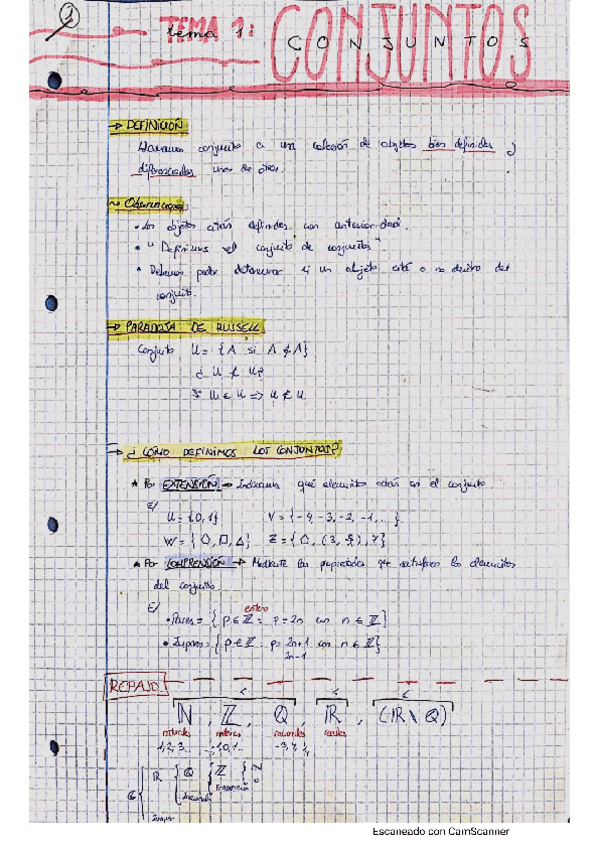 TEMA 1: CONJUNTOS
tema 1: CONJUNTOS
→ DEFINICIÓN
Llamamos conjunto a un colección de objetos bien definidos y
diferenciados unos de otros.
~ Observaciones
• Los objetos están definidos con anterioridad.
• " Definimos el conjunto de conjuntos".
• Debemos poder determinar si un objeto está o no dentro del
conjunto.
→ PARADOJA DE RUSSELL
Conjunto U = {A si A ∉ A}
¿ U ∉ U?
Si U ∈ U => U ∉ U
→ ¿ COMO DEFINIMOS LOS CONJUNTOS?
* Por EXTENSIÓN → Indicamos qué elementos están en el conjunto
E/
U = {0,1} V = {-4,-3,-2,-1,... }
W = { ⬠, □, △} Z = {△, (3, ), 7}
* Por COMPRENSIÓN → Mediante las propiedades que satisfacen los elementos
del conjunto.
E/
entero
• Pares = { p ∈ ℤ : p = 2n con n ∈ ℤ}
• Impares = { p ∈ ℤ : p = 2n+1 con n ∈ ℤ}
2n-1
REPASO
ℕ , ℤ , ℚ , ℝ , (ℝ \ ℚ)
naturales enteros racionales reales
1,2,3... ...-1,0,1...
ℂ { ℝ { ℚ { ℤ { ℕ
0
Escaneado con CamScanner